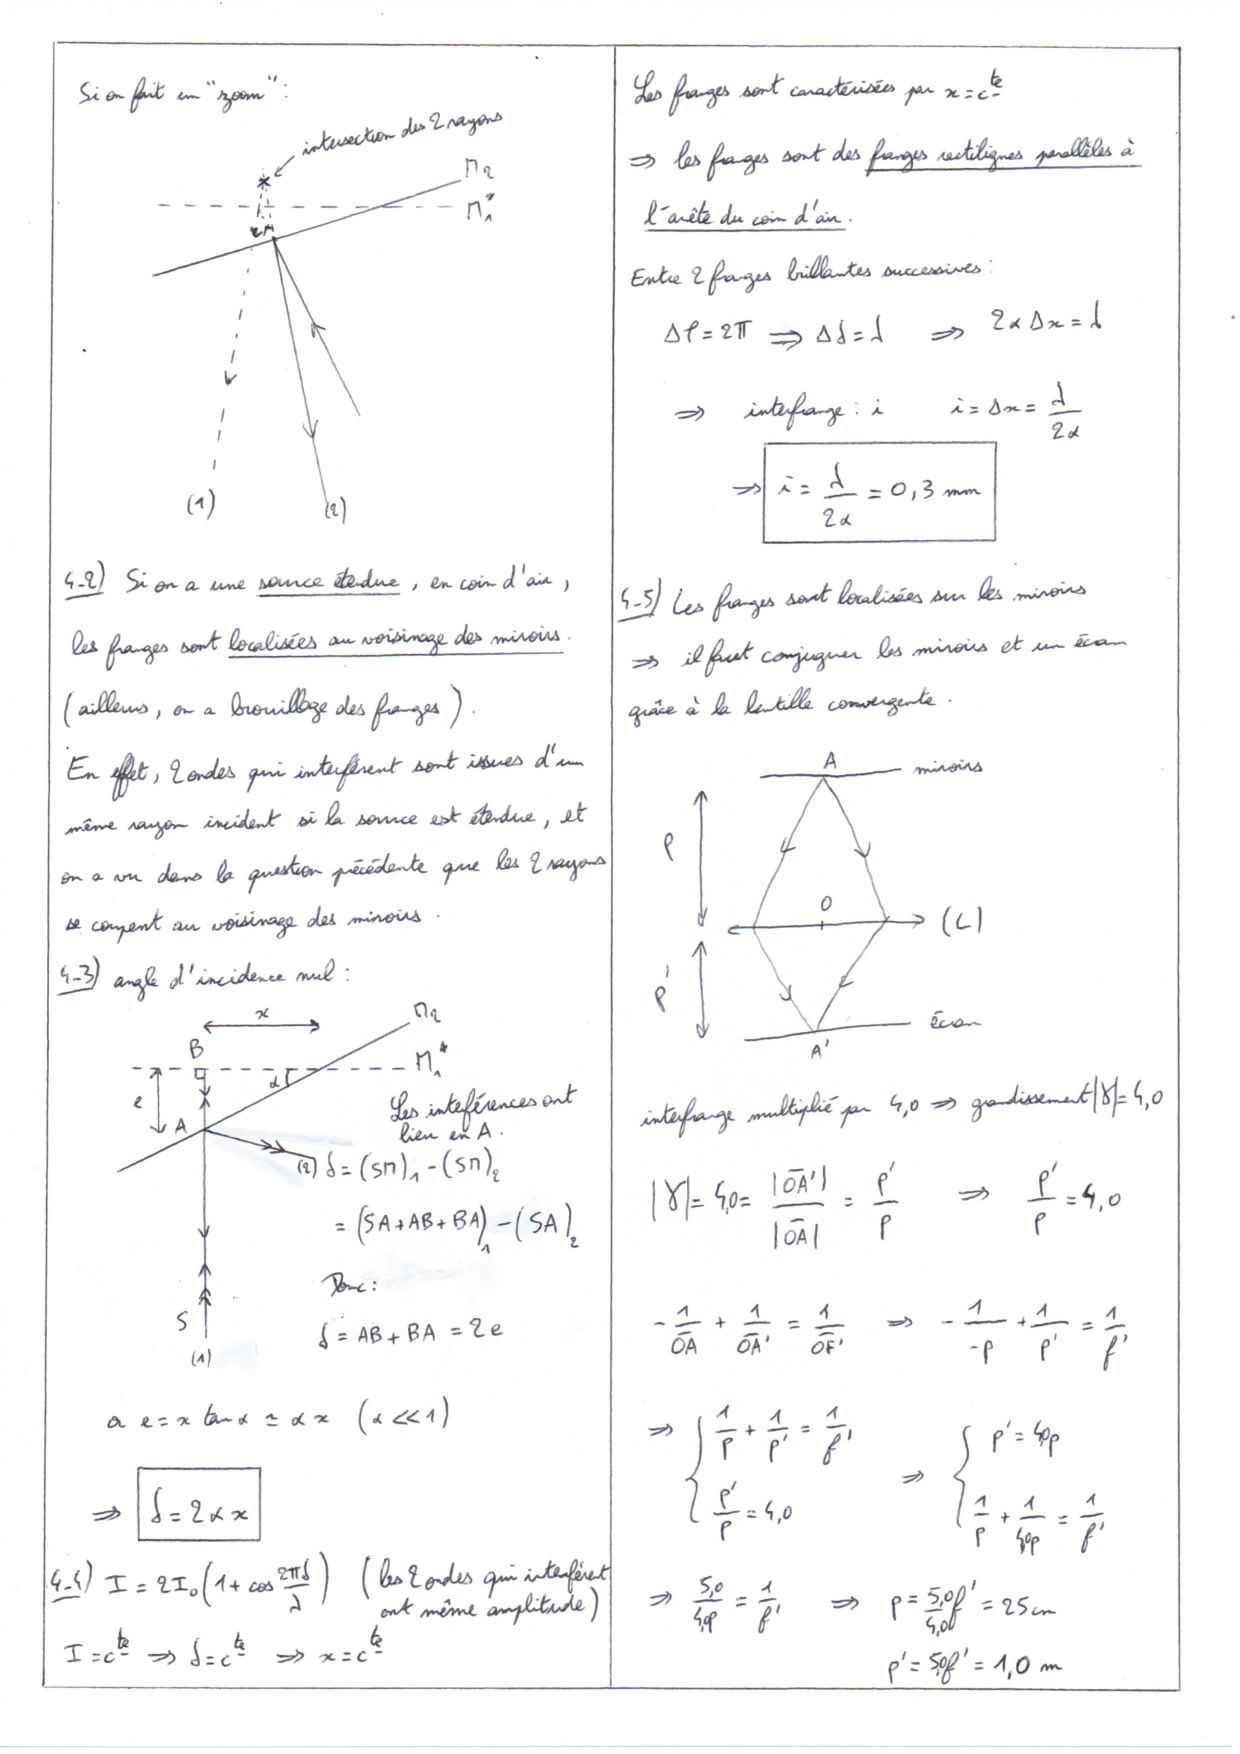 Si on fait un "zoom":
intersection des 2 rayons
M2
M1*
(1)
(2)
4-2) Si on a une source étendue, en coin d'air,
les franges sont localisées au voisinage des miroirs.
(ailleurs, on a brouillage des franges).
En effet, 2 ondes qui interfèrent sont issues d'un
même rayon incident si la source est étendue, et
on a vu dans la question précédente que les 2 rayons
se coupent au voisinage des miroirs.
4-3) angle d'incidence nul:
x
M2
B
M1*
α
e
A
Les interférences ont
lieu en A.
(2) δ = (SM)1 - (SM)2
= (SA+AB+BA)1 - (SA)2
Donc:
S
δ = AB + BA = 2e
(1)
or e = x tan α ≃ α x (α << 1)
⇒ δ = 2αx
4-4) I = 2I0 (1 + cos 2πδ/λ) (les 2 ondes qui interfèrent
ont même amplitude)
I = cte ⇒ δ = cte ⇒ x = cte
Les franges sont caractérisées par x = cte
⇒ les franges sont des franges rectilignes parallèles à
l'arête du coin d'air.
Entre 2 franges brillantes successives:
Δφ = 2π ⇒ Δδ = λ ⇒ 2α Δx = λ
⇒ interfrange: i i = Δx = λ/2α
⇒ i = λ/2α = 0,3 mm
4-5) Les franges sont localisées sur les miroirs
⇒ il faut conjuguer les miroirs et un écran
grâce à la lentille convergente.
A
miroirs
p
O
(L)
p'
écran
A'
interfrange multiplié par 4,0 ⇒ grandissement |γ| = 4,0
|γ| = 4,0 = |OA'|/|OA| = p'/p ⇒ p'/p = 4,0
- 1/OA + 1/OA' = 1/OF' ⇒ - 1/-p + 1/p' = 1/f'
⇒ { 1/p + 1/p' = 1/f' ⇒ { p' = 4,0p
p'/p = 4,0 1/p + 1/4,0p = 1/f'
⇒ 5,0/4,0p = 1/f' ⇒ p = 5,0/4,0 f' = 25 cm
p' = 5,0f' = 1,0 m